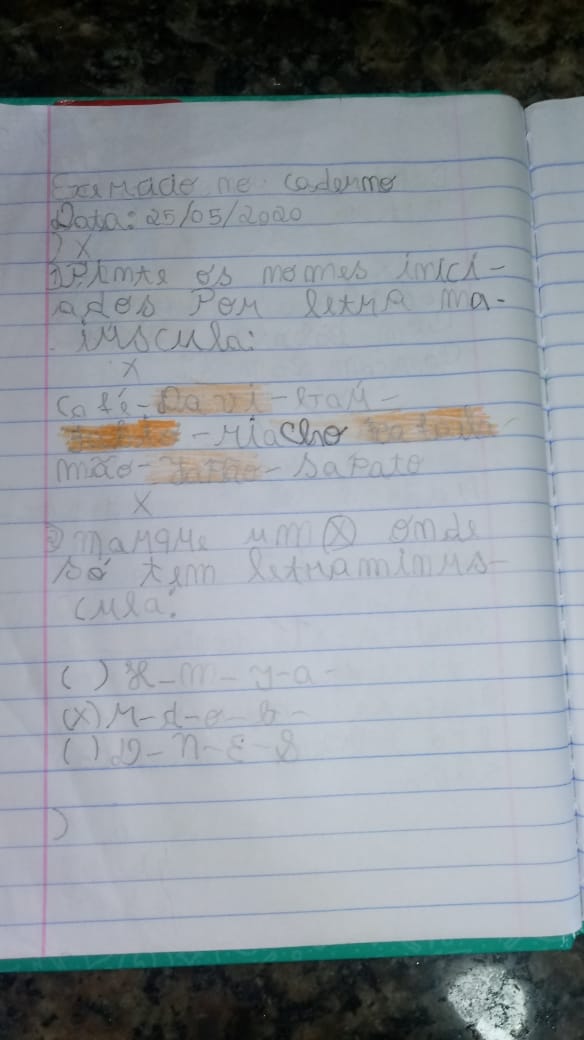 Exerádo no caderno
Data: 25/05/2020
) X
1) Pinte os nomes inici-
ados por letra ma-
iúscula:
X
Café - Davi -
- riacho
mão - - sapato
X
2) marque um (X) onde
só tem letra minus-
cula:
( ) - m - y - a -
(X) r - d - o - b -
( ) D - N - E - S
)